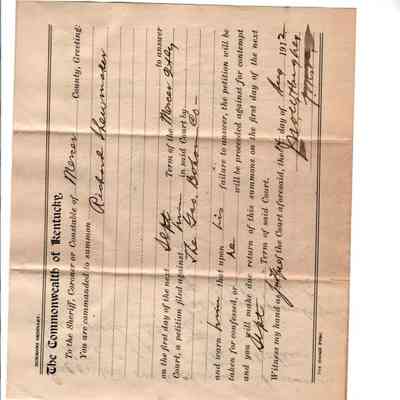 SUMMONS ORDINARY.
The Commonwealth of Kentucky,
To the Sheriff, Coroner or Constable of Mercer County, Greeting:
You are commanded to summon Richard Shewmaker
to answer
on the first day of the next Sept Term of the Mercer
Court, a petition filed against him in said Court by
The Geo. Bohon Co
and warn him that upon his failure to answer, the petition will be
taken for confessed, or he will be proceeded against for contempt
and you will make due return of this summons on the first day of the next
Sept Term of said Court.
Witness my hand as of the Court aforesaid, the day of Aug 1912
Hughes